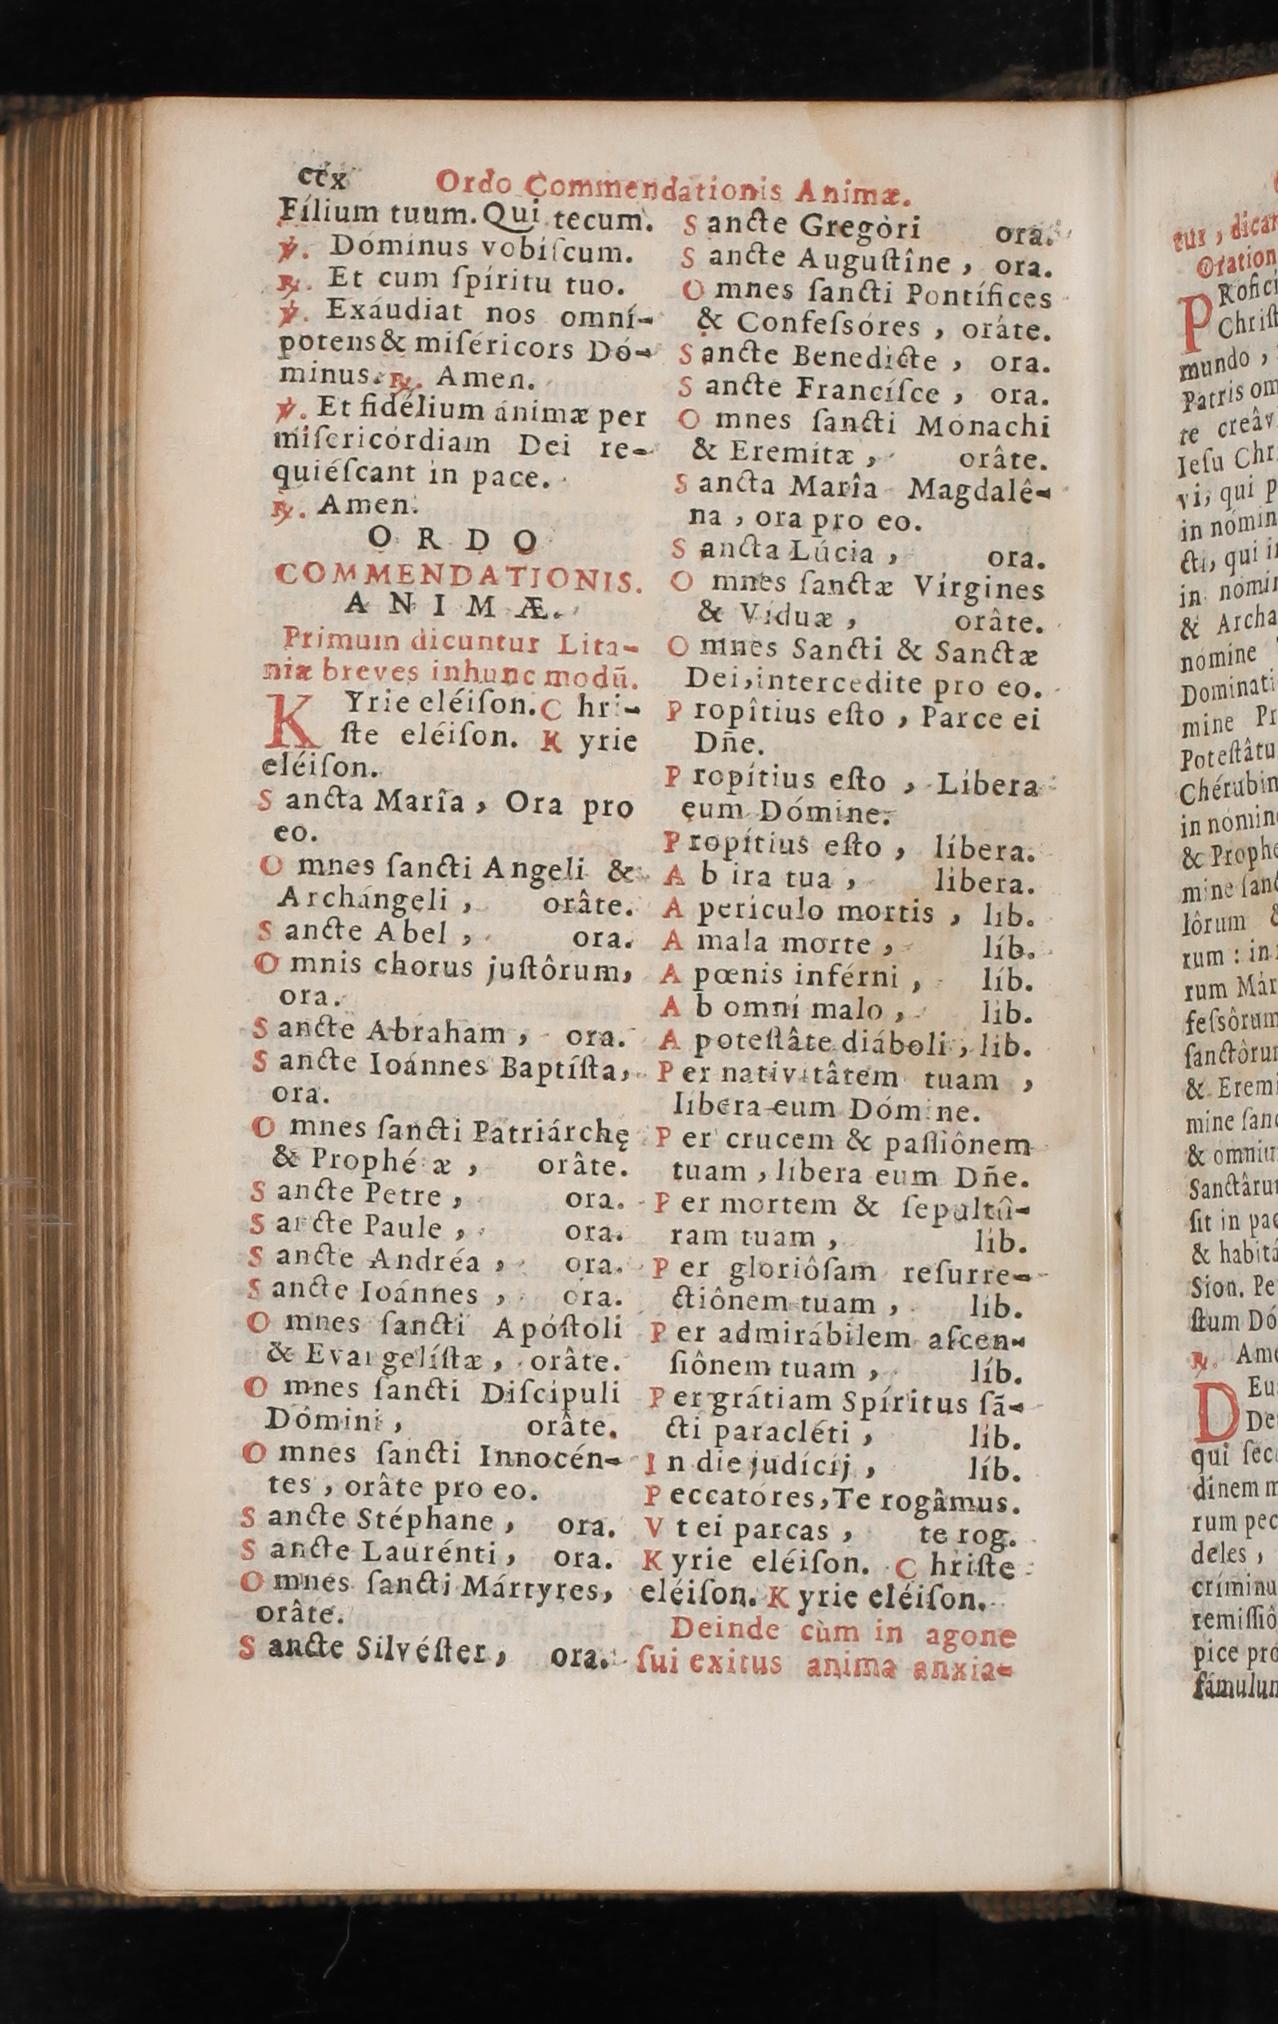 ccx Ordo Commendationis Animæ.
Fílium tuum. Qui tecum.
℣. Dóminus vobiſcum.
℟. Et cum ſpíritu tuo.
℣. Exáudiat nos omní-
potens & miſéricors Dó-
minus. ℟. Amen.
℣. Et fidélium ánimæ per
miſericórdiam Dei re-
quiéſcant in pace.
℟. Amen.
ORDO
COMMENDATIONIS.
ANIMÆ.
Primum dicuntur Lita-
niæ breves in hunc modū.
KYrie eléiſon. Chri-
ſte eléiſon. Kyrie
eléiſon.
Sancta Marîa, Ora pro
eo.
Omnes ſancti Angeli &
Archángeli, orâte.
Sancte Abel, ora.
Omnis chorus juſtôrum,
ora.
Sancte Abraham, ora.
Sancte Ioánnes Baptíſta,
ora.
Omnes ſancti Patriárchę
& Prophé æ, orâte.
Sancte Petre, ora.
Sancte Paule, ora.
Sancte Andréa, ora.
Sancte Ioánnes, ora.
Omnes ſancti Apóſtoli
& Evangelíſtæ, orâte.
Omnes ſancti Diſcipuli
Dómini, orâte.
Omnes ſancti Innocén-
tes, orâte pro eo.
Sancte Stéphane, ora.
Sancte Laurénti, ora.
Omnes ſancti Mártyres,
orâte.
Sancte Silvéſter, ora.
Sancte Gregòri ora.
Sancte Auguſtîne, ora.
Omnes ſancti Pontífices
& Confeſsóres, oráte.
Sancte Benedicte, ora.
Sancte Francíſce, ora.
Omnes ſancti Monachi
& Eremítæ, orâte.
Sancta Marîa Magdalê-
na, ora pro eo.
Sancta Lúcia, ora.
Omnes ſanctæ Vírgines
& Víduæ, orâte.
Omnes Sancti & Sanctæ
Dei, intercedite pro eo.
Propîtius eſto, Parce ei
Dñe.
Propítius eſto, Libera
eum Dómine.
Propítius eſto, líbera.
Ab ira tua, libera.
A periculo mortis, lib.
A mala morte, líb.
A pœnis inférni, líb.
Ab omni malo, lib.
A poteſtâte diáboli, lib.
Per nativitâtem tuam,
libera eum Dómine.
Per crucem & paſſiônem
tuam, libera eum Dñe.
Per mortem & ſepultû-
ram tuam, lib.
Per gloriôſam reſurre-
ctiônem tuam, lib.
Per admirábilem aſcen-
ſiônem tuam, líb.
Per grátiam Spíritus ſā-
cti paracléti, lib.
In die judícij, líb.
Peccatóres, Te rogâmus.
Vt ei parcas, te rog.
Kyrie eléiſon. Chriſte
eléiſon. Kyrie eléiſon.
Deinde cùm in agone
ſui exitus anima anxia-
tur, dican
Oration
PRofici
Chriſt
mundo,
Patris om
te creâv
Ieſu Chr
vi, qui p
in nómin
cti, qui i
in nomi
& Archa
nomine
Dominati
mine Pr
Poteſtâtu
Chérubin
in nomin
& Prophe
mine ſanc
lôrum &
rum: in
rum Már
feſsôrum
ſanctôrum
& Eremi
mine ſanc
& omniu
Sanctâru
ſit in pac
& habitá
Sion. Pe
ſtum Dó
℟. Ame
DEu
De
qui ſec
dinem m
rum pec
deles,
críminu
remiſſiô
pice pró
fámulum